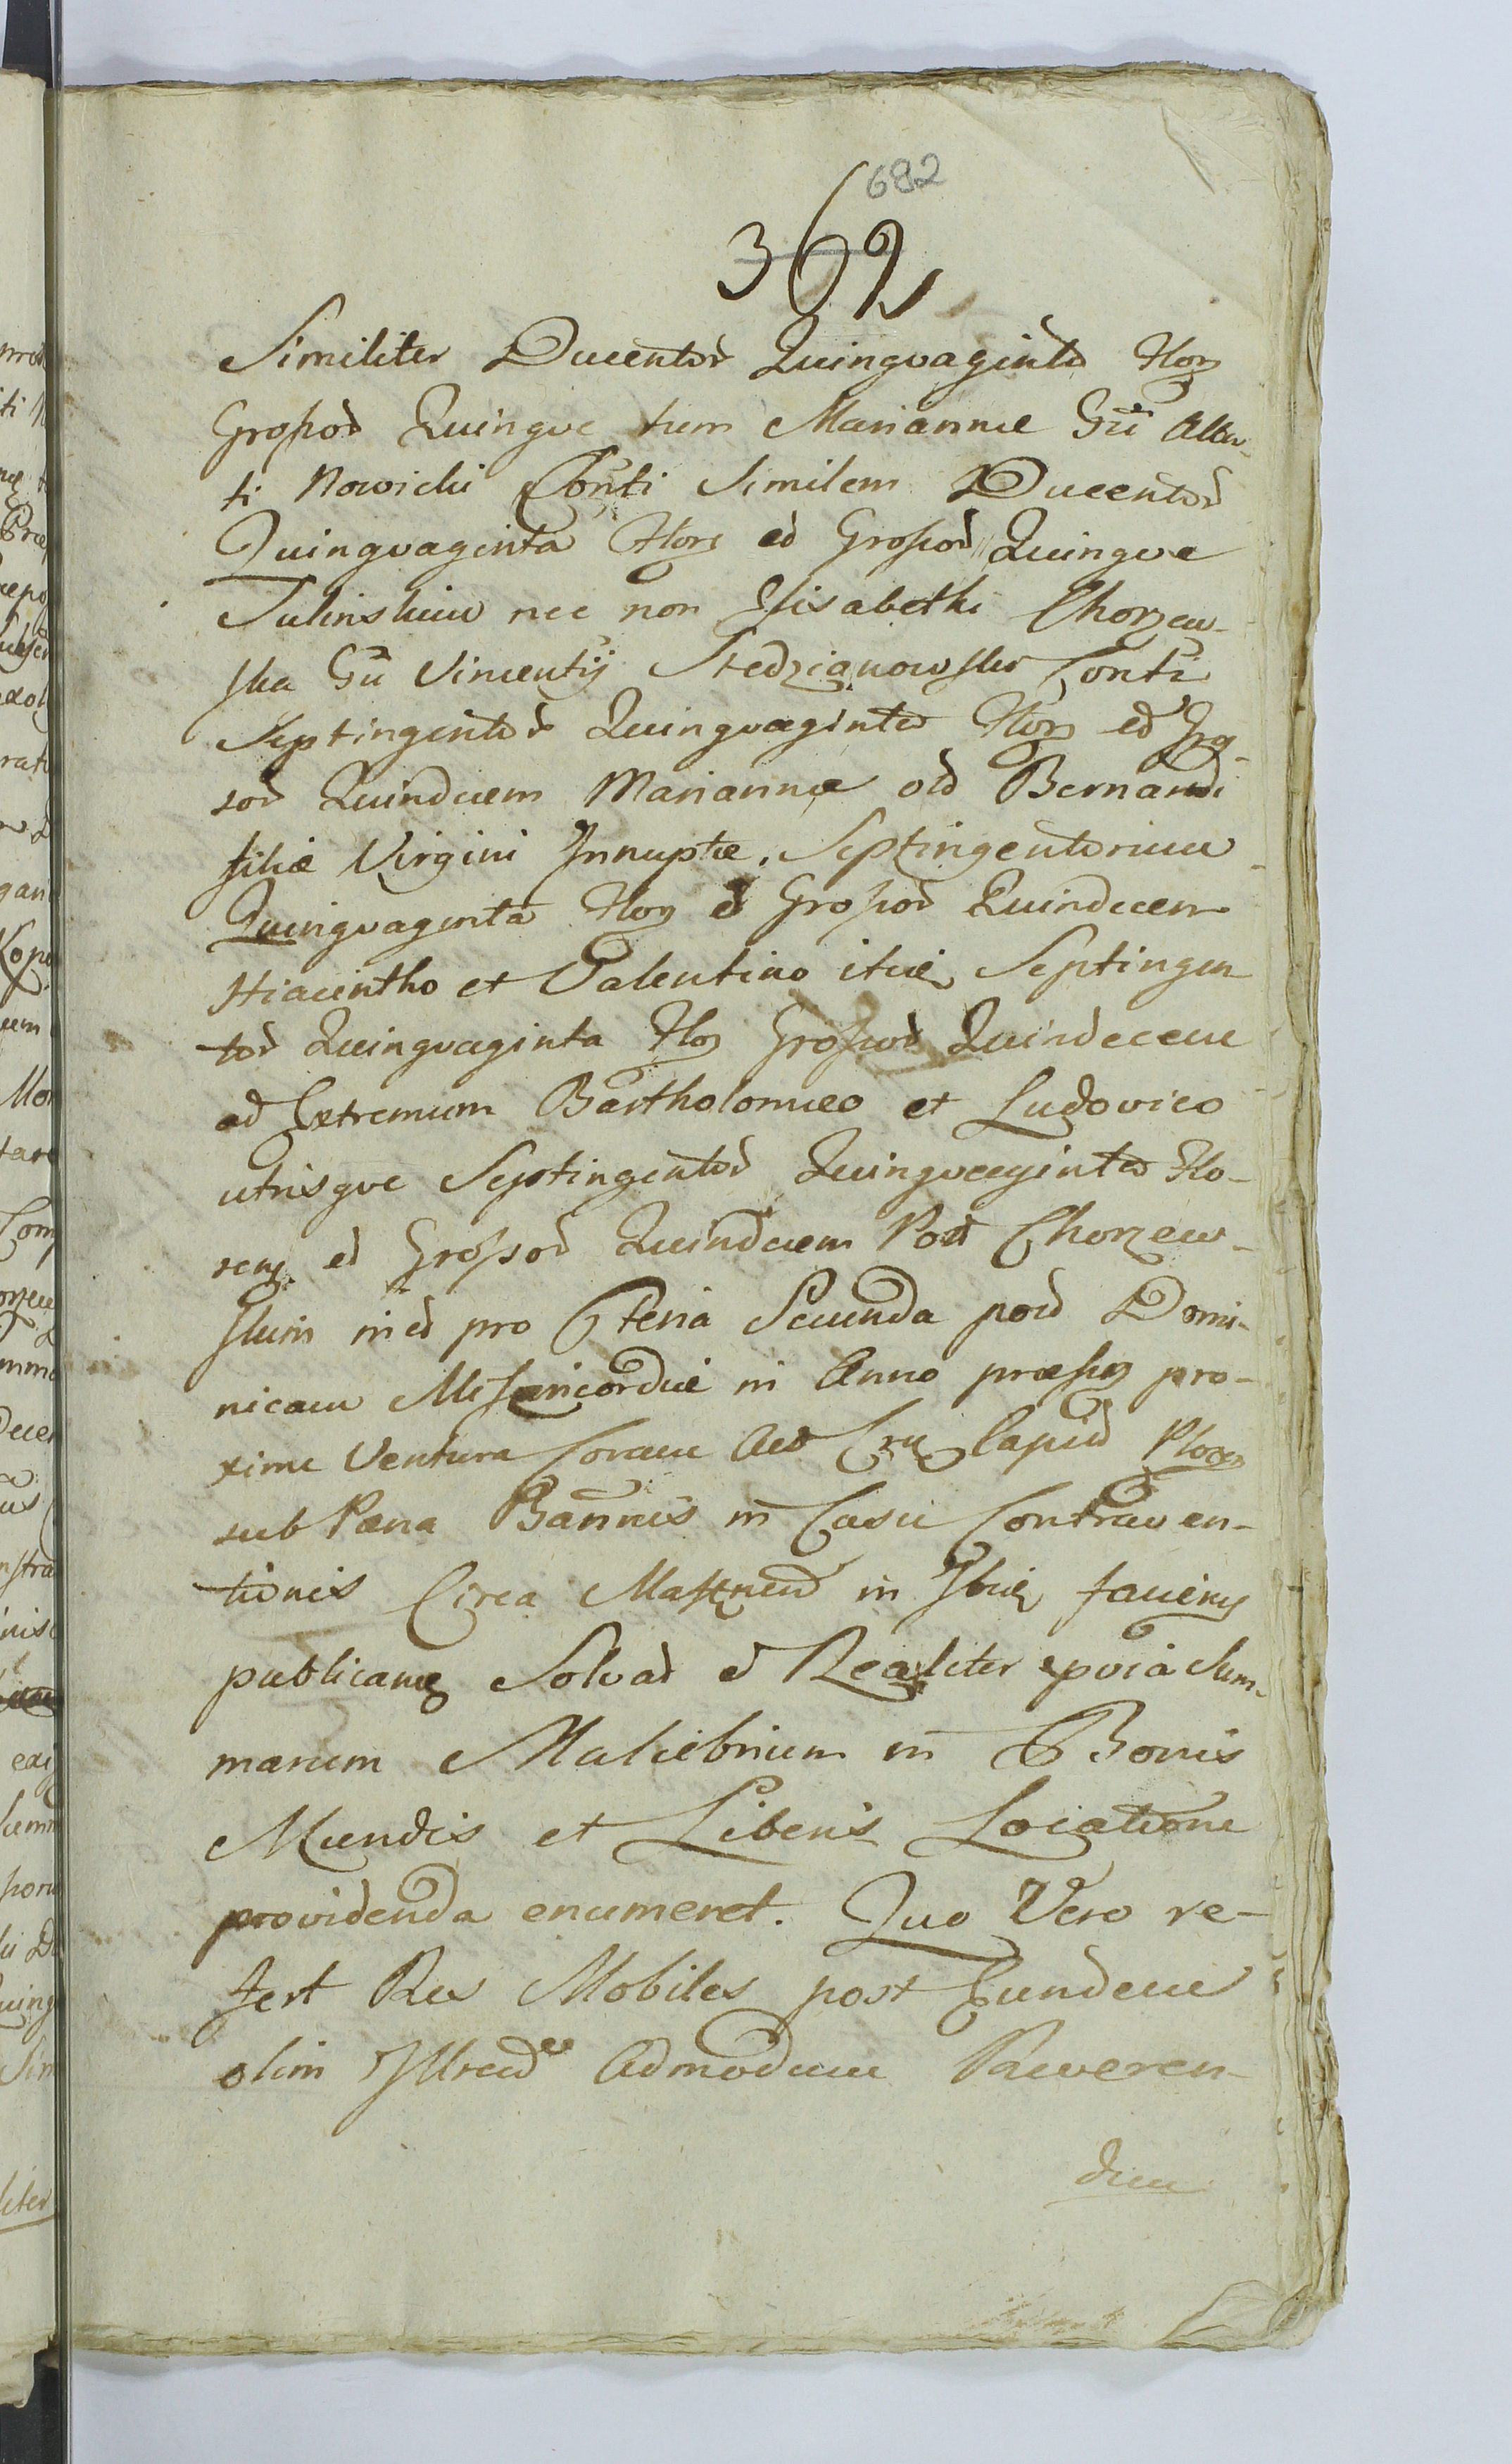 682
362
Similiter Ducentor Quinqvaginta Flor
Grossor Quinqve tum Mariannæ Gū Alber-
ti Nowicki Conti Similem Ducentor
Quinqvaginta Flor et Grossor Quinqve
Sulinskim nec non Elisabethi Chorzew-
ska Gū Vincentij Stedzianowski Conti
Septingentor Quinqvaginta Flor et Gro-
sor Quindecem Mariannæ old Bernardi
filiæ Virgini Innuptæ, Septingentorum
Quinqvaginta Flor et Grossor Quindecem
Hiacintho et Valentino itid Septingen
tor Quinqvaginta Flor Grossor Quindecem
ad Extremum Bartholomæo et Ludovico
utrisqve Septingentor Quinqvaginta Flo-
reny et Grossor Quindecem Post Chorzew-
skim pro Feria Secunda post Domi-
nicam Misericordiæ in Anno præsen pro-
xime Ventura Coram Act Capid Plocen
sub Pæna Bannis in Casu Contraven-
tionis Circa
publicane Solvat et Realiter Sum-
marum Muliebrium in Bonis
Mundis et Liberis Locatione
providenda enumeret. Quo Vero re-
fert Res Mobiles post Eundem
olim Admodum Reveren-
dum